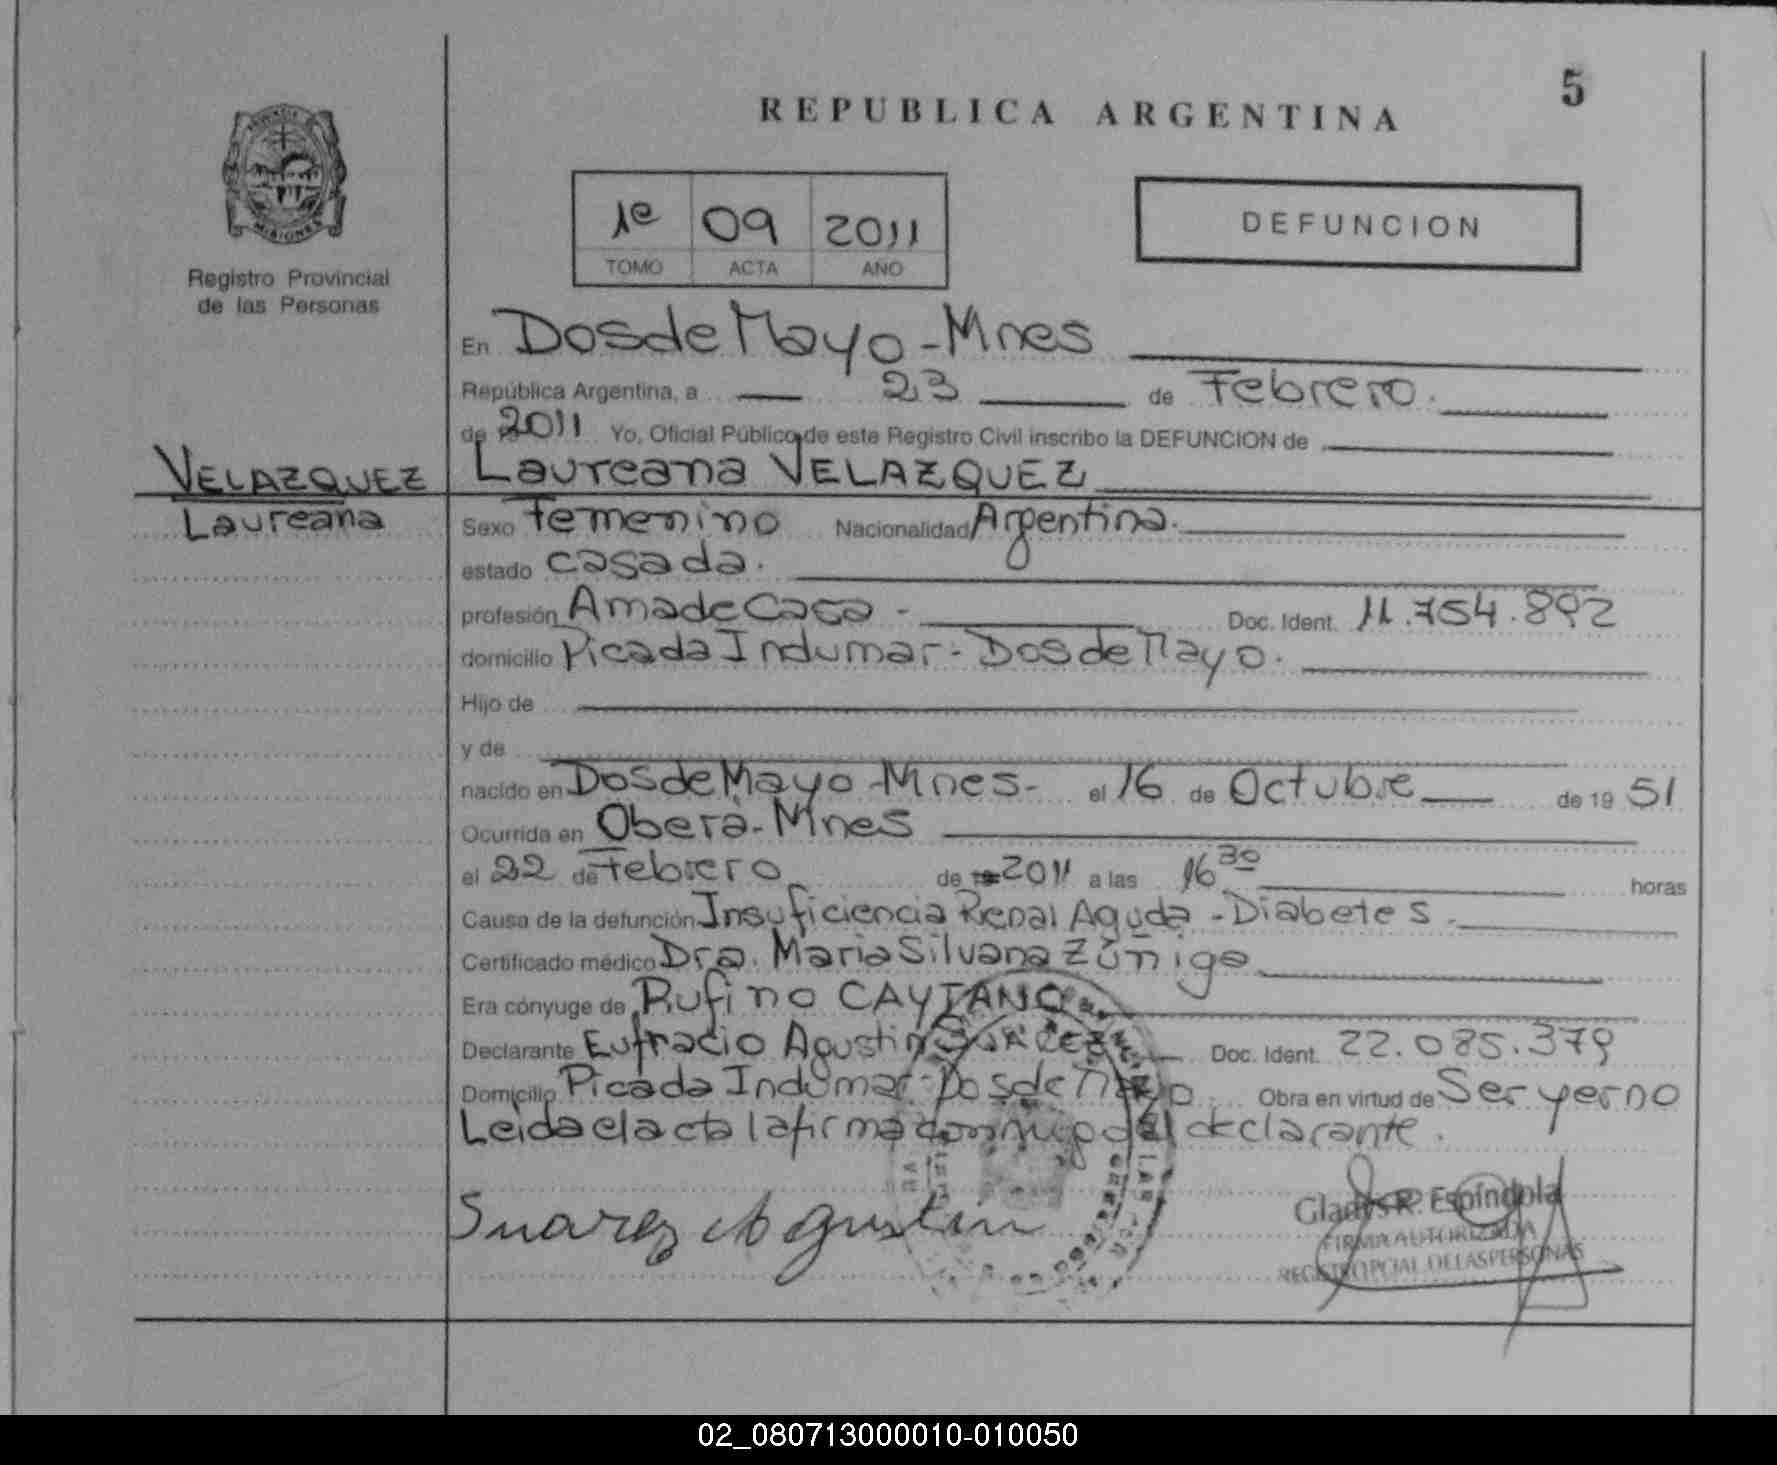 5
REPUBLICA ARGENTINA
1º 09 2011
TOMO ACTA AÑO
DEFUNCION
MISIONES
Registro Provincial
de las Personas
En Dos de Mayo - Mnes
República Argentina, a 23 de Febrero.
de 2011 Yo, Oficial Público de este Registro Civil inscribo la DEFUNCION de
VELAZQUEZ
Laureana
Laureana VELAZQUEZ
Sexo Femenino Nacionalidad Argentina.
estado Casada.
profesión Ama de Casa - Doc. Ident. 11.754.892
domicilio Picada Indumar - Dos de Mayo.
Hijo de
y de
nacido en Dos de Mayo - Mnes - el 16 de Octubre de 19 51
Ocurrida en Oberà - Mnes
el 22 de Febrero de 2011 a las 16 30 horas
Causa de la defunción Insuficiencia Renal Aguda - Diabetes -
Certificado médico Dra. Maria Silvana Zúñiga
Era cónyuge de Rufino CAYTANO
Declarante Eufracio Agustin SUAREZ Doc. Ident. 22.085.379
Domicilio Picada Indumar - Dos de Mayo Obra en virtud de Ser yerno
Leida el acta la firma conmigo el declarante.
Suarez Agustin
Gladys R. Espíndola
FIRMA AUTORIZADA
REGISTRO PCIAL. DE LAS PERSONAS
02_080713000010-010050